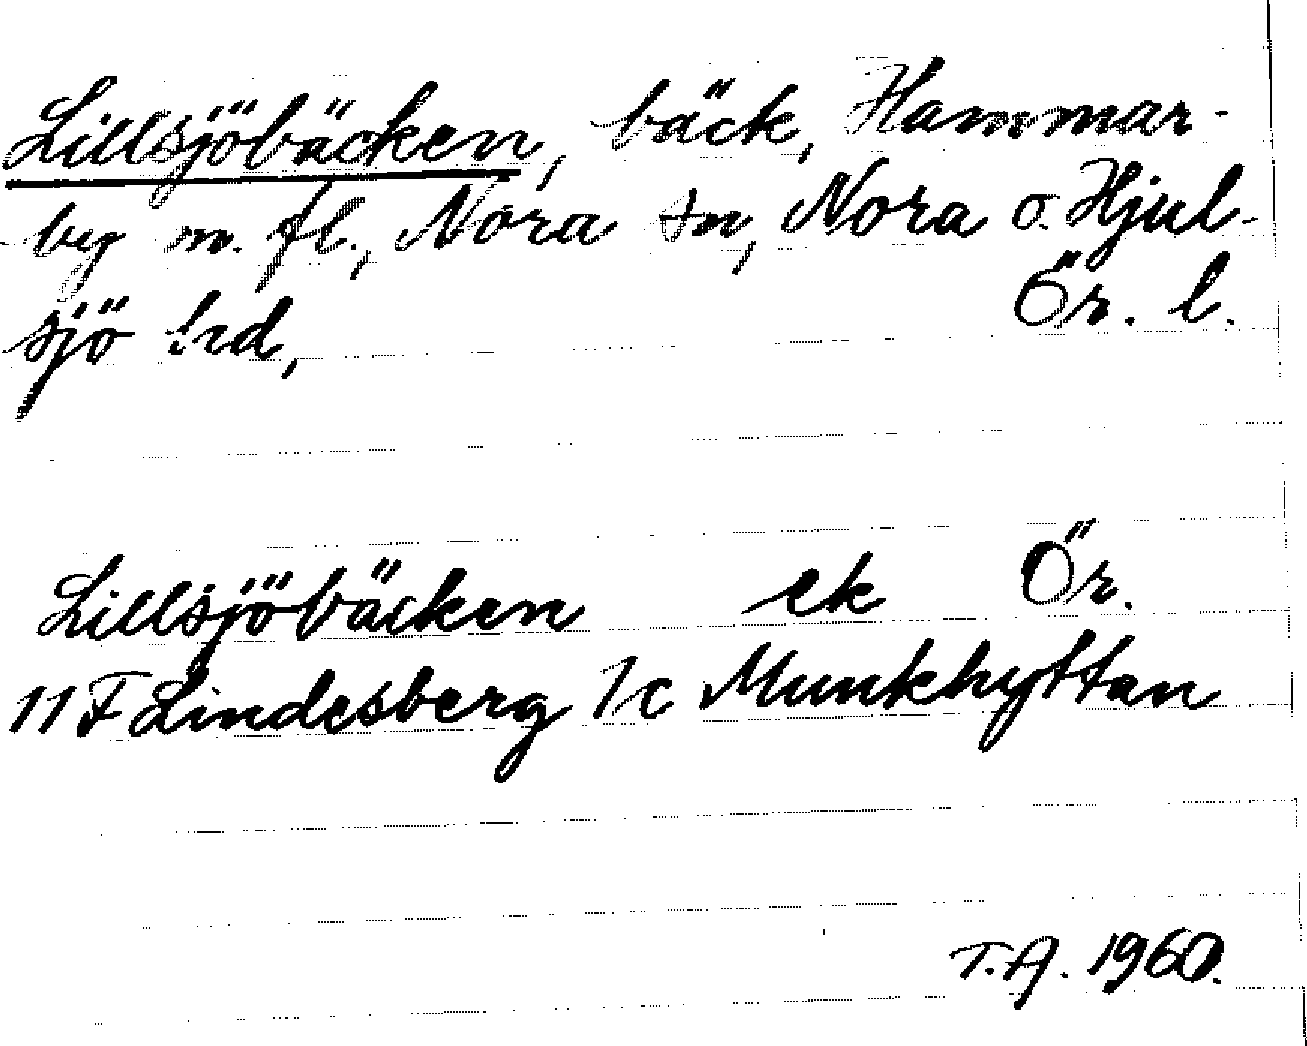 Lillsjöbäcken, bäck, Hammar-
by m. fl., Nora sn, Nora o. Hjul-
sjö hrd, Ör. l.
Lillsjöbäcken ek Ör.
11 F Lindesberg 1c Munkhyttan
T.A. 1960.